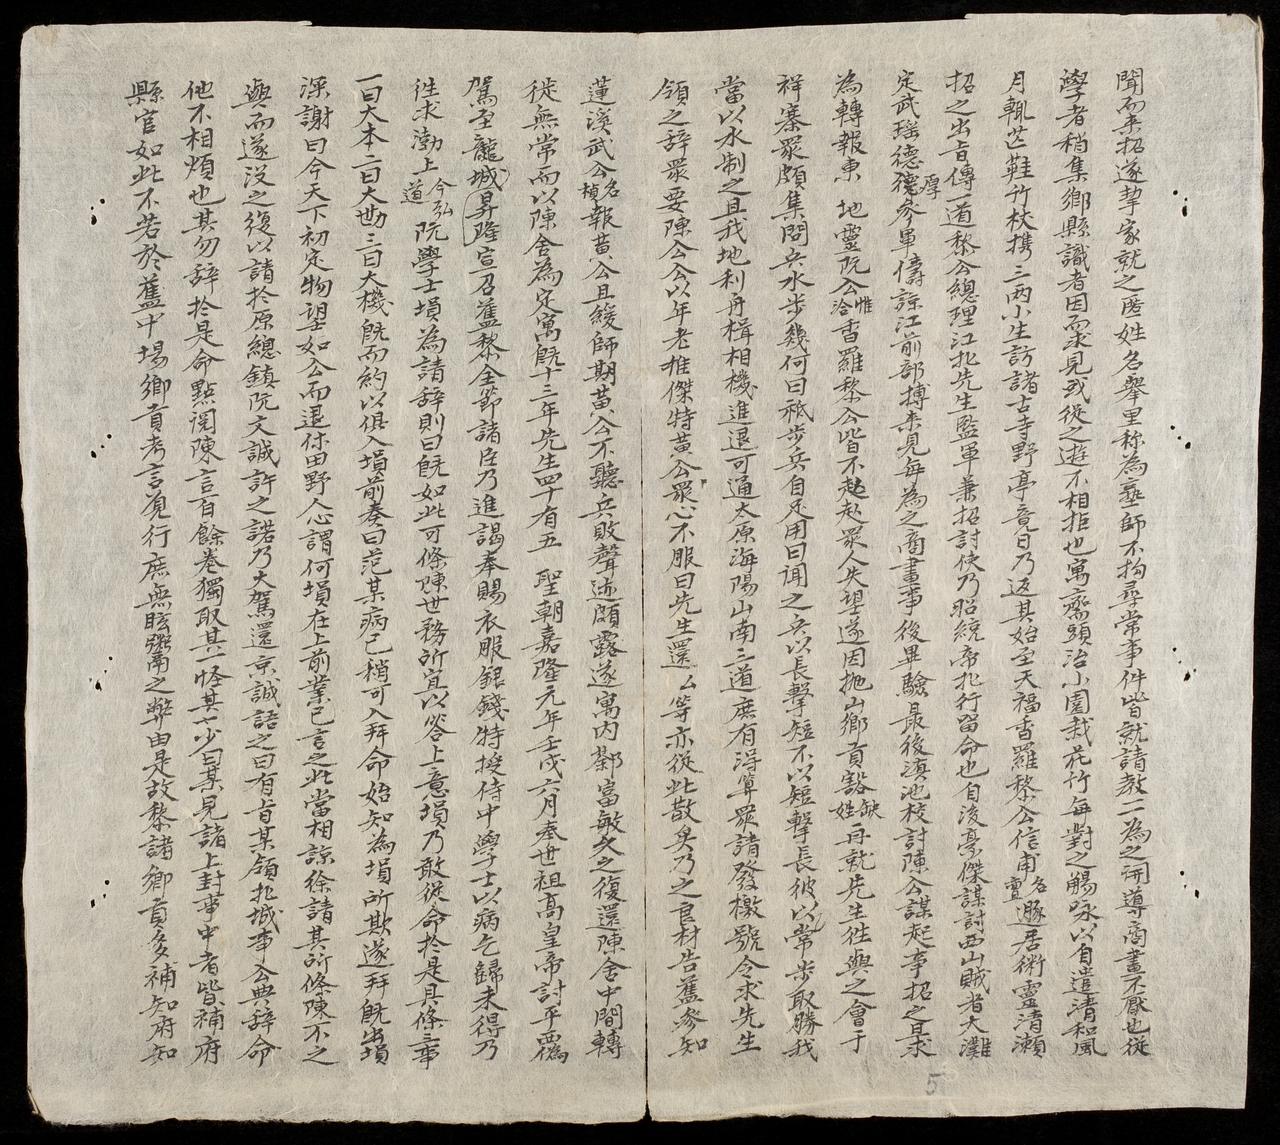 聞而來招遂挈家就之匿姓名舉里称為塾師不拘尋常事件皆就請教一一為之開導商畫不厭也従
學者稍集鄉縣識者因而求見或従之遊不相拒也寓齋頭治小園栽花竹每對之觴咏以自遣清和風
月輒芒鞋竹杖携三两小生訪諸古寺野亭竟日乃返其始至天福香羅黎公信甫名亶遯居術靈清瀬
招之出旨傳一道黎公總理江北先生監軍兼招討使乃昭統帝北行留命也自後豪傑謀討西山賊者大灘
定武瑶德德厚參軍儔諒江前部摶来見每為之商畫事後畢驗最後滇池校討陳公謀起事招之且求
為轉報東 地靈阮公惟洽香羅黎公皆不起赴眾人失望遂因抛山鄉貢豁缺姓再就先生徃與之會于
祥寨眾頗集問兵水步幾何曰祗步兵自足用曰誤之兵以長擊短不以短擊長彼以常步取勝我
當以水制之且我地利舟楫相機進退可通太原海陽山南三道庶有淂算眾請發檄號令求先生
領之辞眾要陳公公以年老推傑特黃公眾心不服曰先生還么等亦従此散矣乃之良材告舊參知
蓮溪武公名楨報黃公且緩師期黃公不聽兵敗聲迹頗露遂寓内鄰富敏久之復還陳舍中間轉
徙無常而以陳舍為定寓旣十三年先生四十有五 聖朝嘉隆元年壬戌六月奉世祖高皇帝討平西僞
駕至龍城昇隆宣召舊黎全節諸臣乃進謁奉賜衣服銀錢特授侍中學士以病乞歸未得乃
徃求渤上今弘道阮學士塤為請辞則曰旣如此可條陳世務所宜以答上意塤乃敢従命於是具條三事
一曰大本二曰大勢三曰大機旣而約以俱入塤前奏曰范某病已稍可入拜命始知為塤所欺遂拜旣出塤
深謝曰今天下初定物望如公而退休田野人心謂何塤在上前業已言之此當相諒徐請其所條陳不之
與而遂没之復以請於原總鎮阮文誠許之諾乃大駕還京誠語之曰有旨某領北城事公典辞命
他不相煩也其勿辞於是命點閱陳言百餘卷獨取其一怪其太少曰某見諸上封事中者皆補府
縣官如此不若於舊中場鄉貢考言覓行庶無眩鬻之弊由是故黎諸鄉貢多補知府知
5